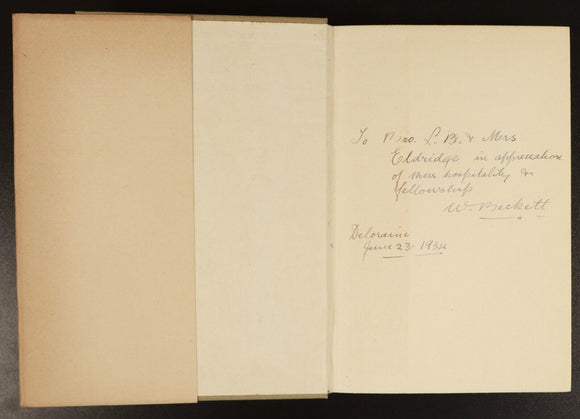 To Bro. L. B. & Mrs
Eldridge in appreciation
of their hospitality &
fellowship
W. Beckett
Deloraine
June 23 - 1934